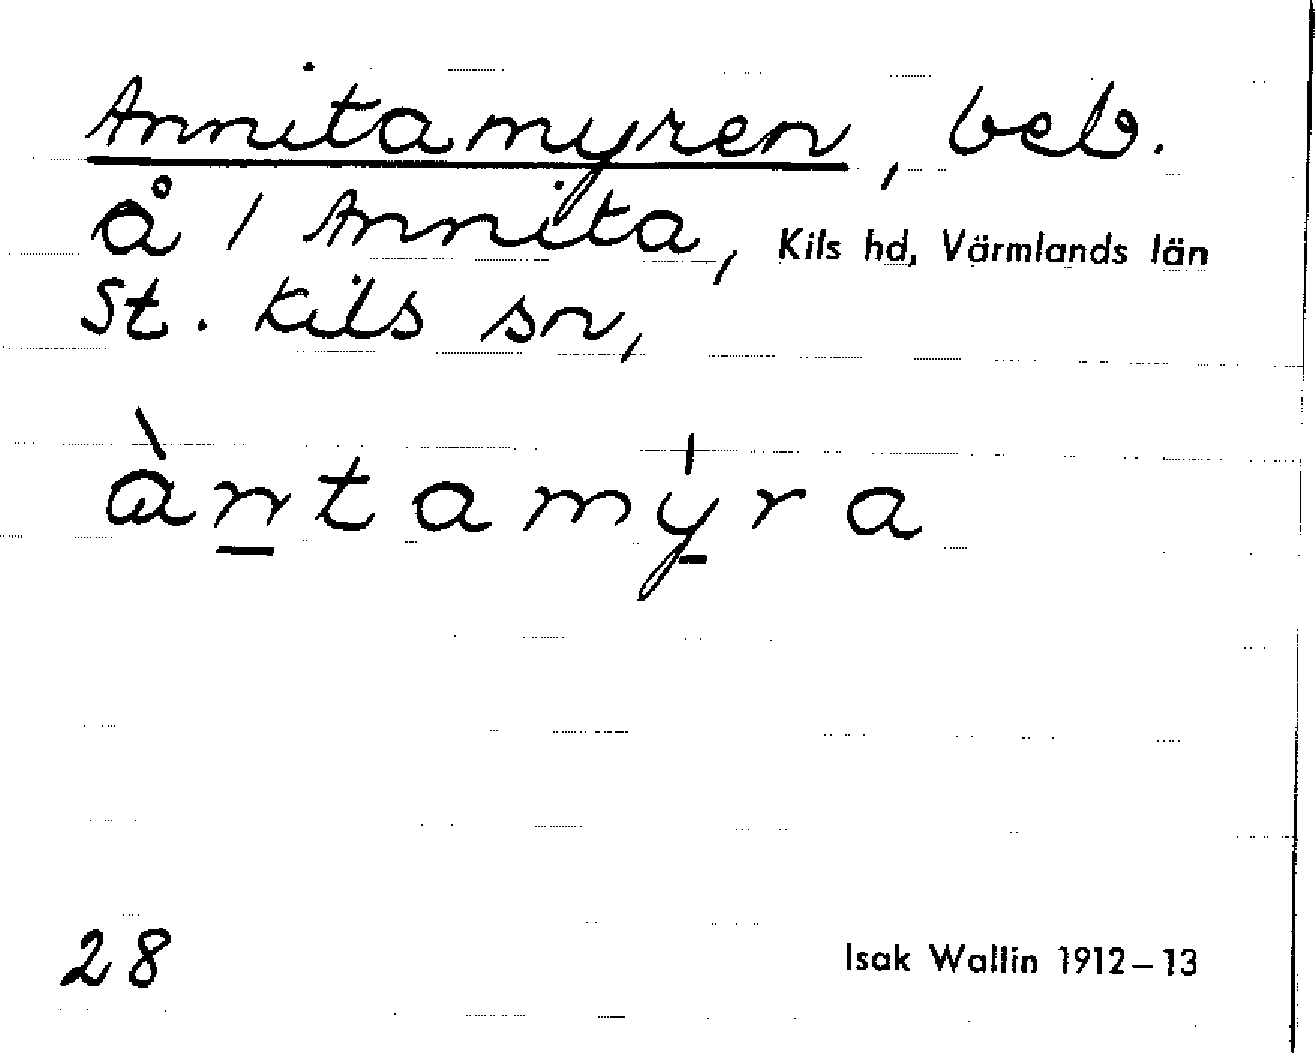 Annitamyren, beb.
å / Annita, Kils hd, Värmlands län
St. Kils sn,
àntamyra
28
Isak Wallin 1912–13